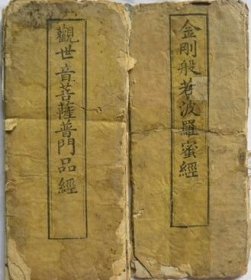 金剛般若波羅蜜經
觀世音菩薩普門品經